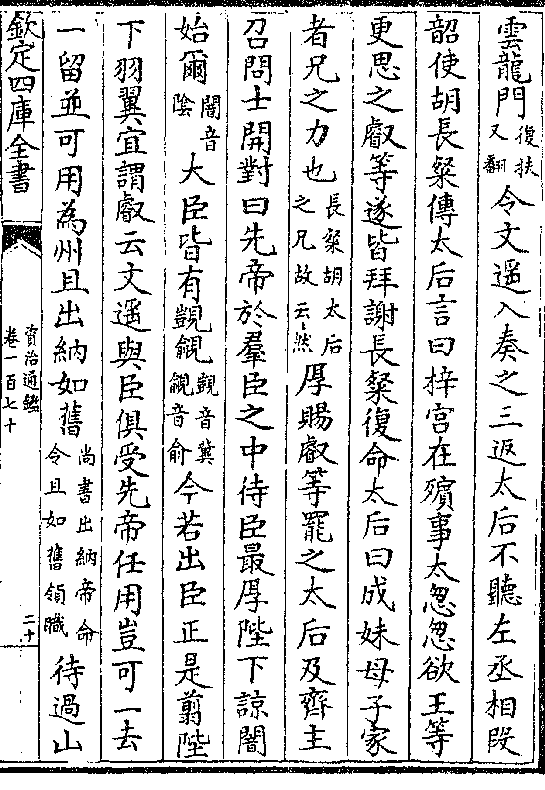 雲龍門復扶又翻令文遥入奏之三返太后不聽左丞相段
韶使胡長粲傳太后言曰梓宫在殯事太怱怱欲王等
更思之叡等遂皆拜謝長粲復命太后曰成妹母子家
者兄之力也長粲胡太后之兄故云然厚賜叡等罷之太后及齊主
召問士開對曰先帝於羣臣之中待臣最厚陛下諒闇
始爾闇音陰大臣皆有覬覦覬音冀覦音俞今若出臣正是翦陛
下羽翼宜謂叡云文遥與臣俱受先帝任用豈可一去
一留並可用為州且出納如舊尚書出納帝命令且如舊領職待過山
欽定四庫全書
資治通鑑
卷一百七十
二十